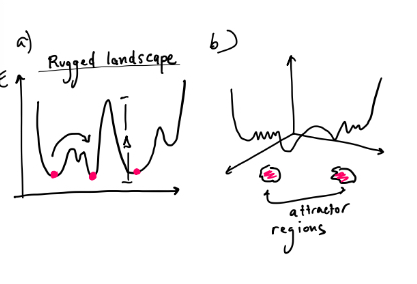 a)
Rugged landscape
E
Δ
b)
attractor
regions